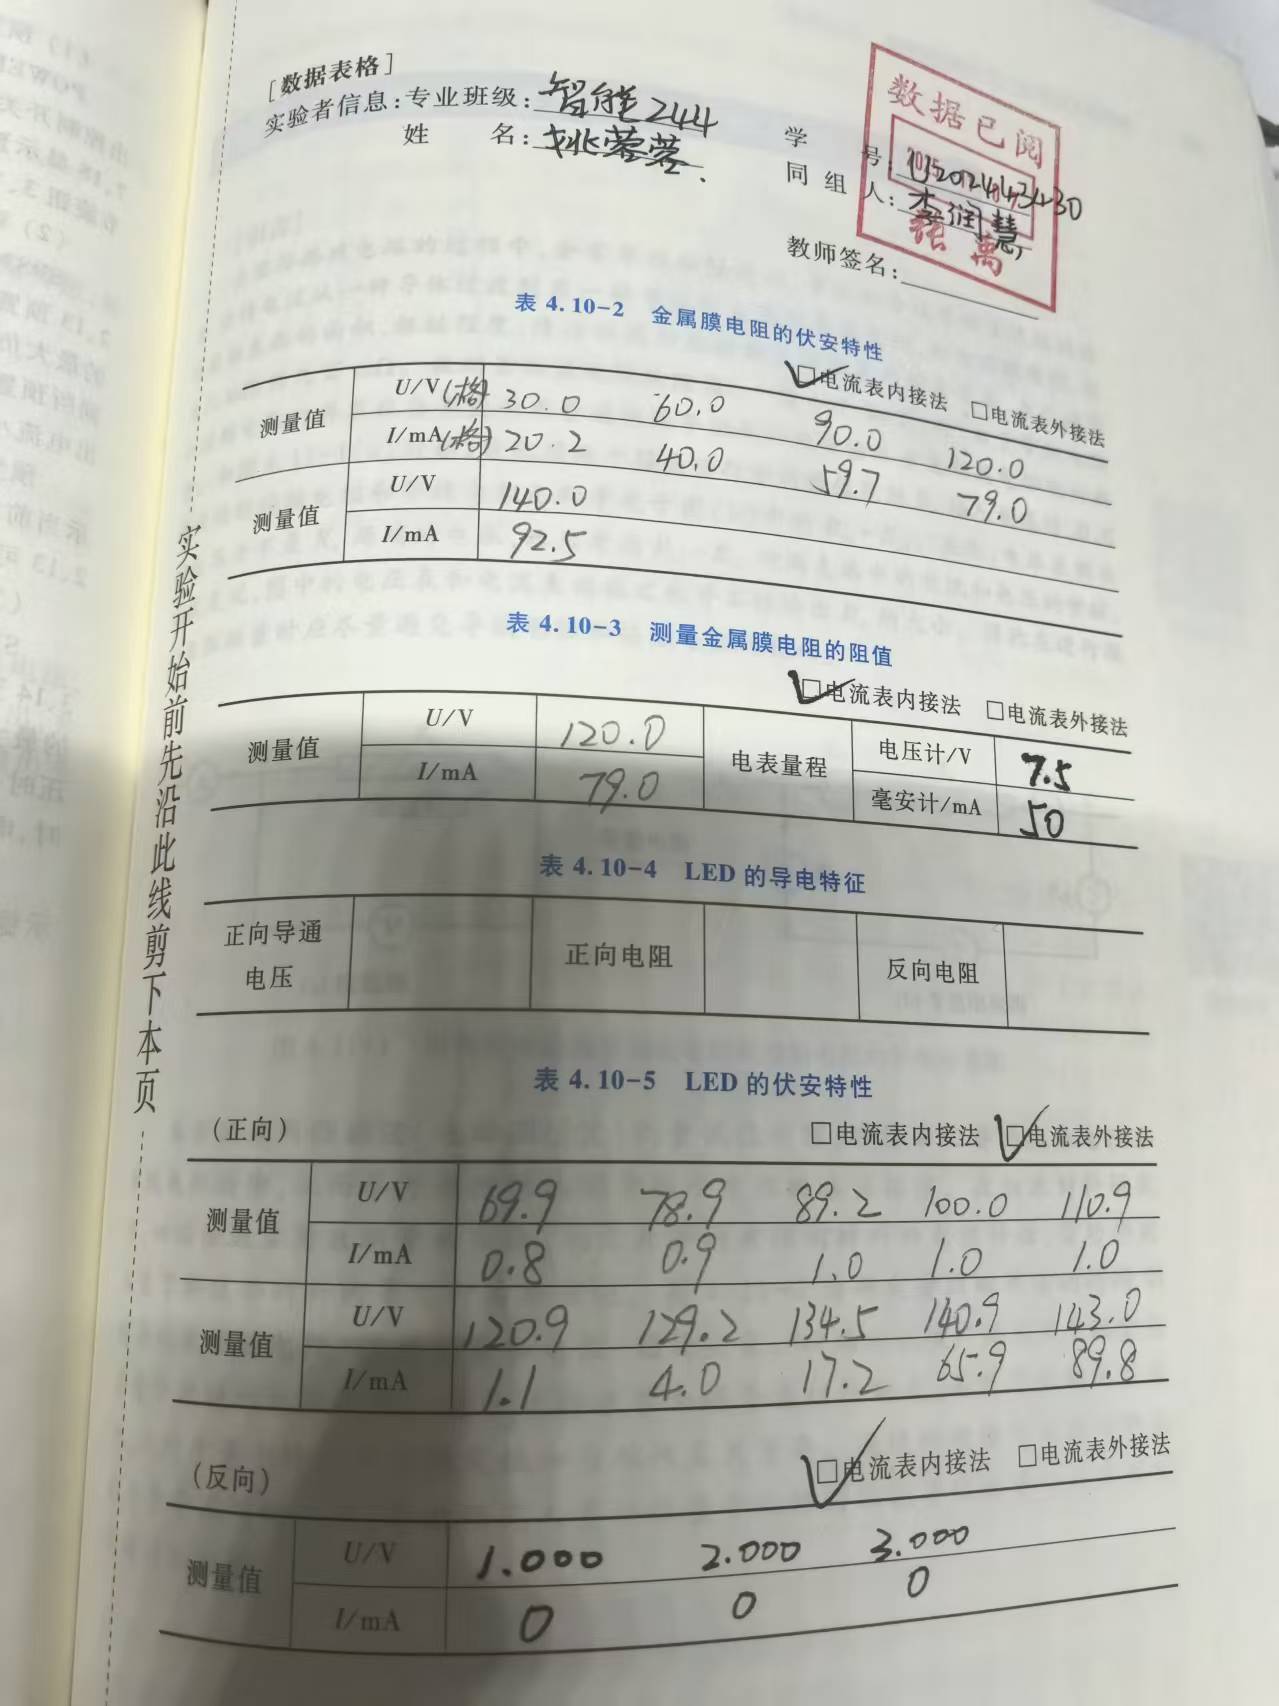 [数据表格]
实验者信息:专业班级:智能244
姓 名:姚蓉蓉
学 号:
同组人:李润慧
教师签名:
数据已阅
表 4.10-2 金属膜电阻的伏安特性
☑电流表内接法 □电流表外接法
测量值 U/V(格) 30.0 60.0 90.0 120.0
I/mA(格) 20.2 40.0 59.7 79.0
测量值 U/V 140.0
I/mA 92.5
表 4.10-3 测量金属膜电阻的阻值
☑电流表内接法 □电流表外接法
测量值 U/V 120.0 电表量程 电压计/V 7.5
I/mA 79.0 毫安计/mA 50
表 4.10-4 LED 的导电特征
正向导通电压 正向电阻 反向电阻
表 4.10-5 LED 的伏安特性
(正向) □电流表内接法 ☑电流表外接法
测量值 U/V 69.9 78.9 89.2 100.0 110.9
I/mA 0.8 0.9 1.0 1.0 1.0
测量值 U/V 120.9 129.2 134.5 140.9 143.0
I/mA 1.1 4.0 17.2 65.9 89.8
(反向) ☑电流表内接法 □电流表外接法
测量值 U/V 1.000 2.000 3.000
I/mA 0 0 0
实验开始前先沿此线剪下本页